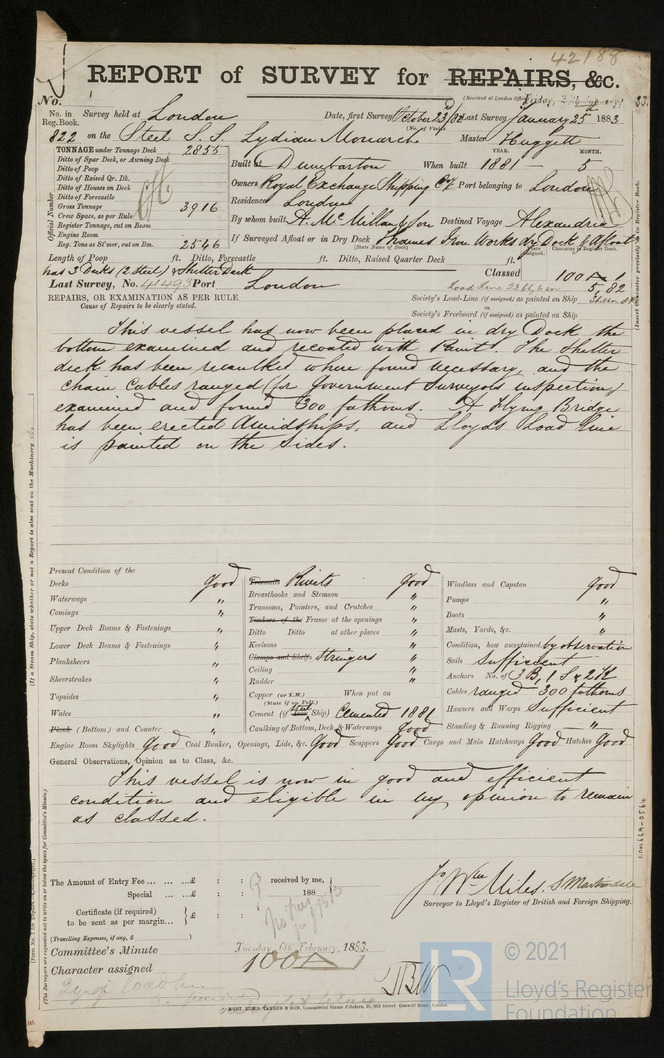 42188
REPORT of SURVEY for REPAIRS, &c.
(Received at London Office Friday, 2 February 1883.
No.
No. in Reg. Book. Survey held at London Date, first Survey October 23/82 Last Survey January 25th 1883
(No. of Visits)
822 on the Steel S.S. Lydian Monarch Master Huggett
TONNAGE under Tonnage Deck 2855
Ditto of Spar Deck, or Awning Deck
Ditto of Poop
Ditto of Raised Qr. Dk.
Ditto of Houses on Deck
Ditto of Forecastle
Gross Tonnage 3916
Crew Space, as per Rule
Register Tonnage, cut on Beam
Engine Room
Reg. Tons as St'mer, cut on Bm. 2546
Official Number
YEAR. MONTH.
Built at Dumbarton When built 1881 5
Owners Royal Exchange Shipping Co Ld Port belonging to London
Residence London
By whom built A. McMillan & Son Destined Voyage Alexandria
If Surveyed Afloat or in Dry Dock Thames Iron Works dry Dock & Afloat
(State Name of Dock)
Length of Poop ft. Ditto, Forecastle ft. Ditto, Raised Quarter Deck ft.
has 3 Decks (2 Steel) & Shelter Deck
Classed 100 A 1
5,82
Last Survey, No. 41493 Port London
Load Line 23 ft, 6 in
REPAIRS, OR EXAMINATION AS PER RULE
Cause of Repairs to be clearly stated.
Society's Load-Line (if assigned) as painted on Ship
or
Society's Freeboard (if assigned) as painted on Ship
(Insert Character precisely as in Register Book.)
This vessel has now been placed in dry Dock the
bottom examined and recoated with Paint. The Shelter
deck has been recaulked where found necessary and the
Chain Cables ranged (for Government Surveyors inspection)
examined and found 300 fathoms. A Flying Bridge
has been erected Amidships, and Lloyds Load line
is painted on the sides.
(If a Steam Ship, state whether or not a Report is also sent on the Machinery
Present Condition of the
Decks Good
Waterways "
Comings "
Upper Deck Beams & Fastenings "
Lower Deck Beams & Fastenings "
Planksheers "
Sheerstrakes "
Topsides "
Wales "
Plank (Bottom) and Counter "
Treenails Rivets Good
Breasthooks and Stemson "
Transoms, Pointers, and Crutches "
Timbers of the Frame at the openings "
Ditto Ditto at other places "
Keelsons "
Clamps and Shelfs Stringers "
Ceiling "
Rudder "
Copper (or Y.M.) When put on
(State if on Felt.)
Cement (if Steel Ship) Cemented 1881
Caulking of Bottom, Deck, & Waterways Good
Windlass and Capstan Good
Pumps "
Boats "
Masts, Yards, &c. "
Condition, how ascertained by observation
Sails Sufficient
Anchors No. of 3 B, 1 S & 2 K
Cables ranged 300 fathoms
Hawsers and Warps Sufficient
Standing & Running Rigging "
Engine Room Skylights Good Coal Bunker, Openings, Lids, &c. Good Scuppers Good Cargo and Main Hatchways Good Hatches Good
General Observations, Opinion as to Class, &c.
This vessel is now in good and efficient
condition and eligible in my opinion to remain
as classed.
(The Surveyors are requested not to write on or below the space for Committee's Minute.)
LRF
The Amount of Entry Fee ... ... ...£ : : received by me,
Special ... ...£ : : 188
Certificate (if required)
to be sent as per margin... }£ : :
(Travelling Expenses, if any, £ )
Jo Wm Miles. S Martindale
Surveyor to Lloyd's Register of British and Foreign Shipping.
Committee's Minute Tuesday, 6th February, 1883.
Character assigned 100 A 1
LR
© 2021
Lloyd's Register
Foundation